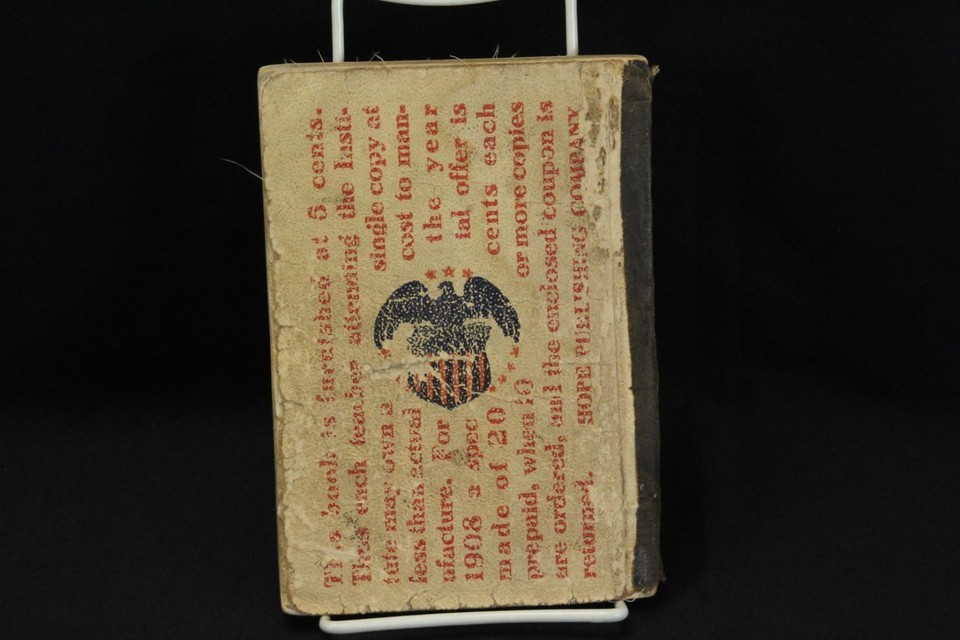 This book is furnished at 5 cents.
Thus each teacher attending the Insti-
tute may own a single copy at
less than actual cost to man-
ufacture. For the year
1908 a spec ial offer is
made of 20 cents each
prepaid, when 10 or more copies
are ordered, and the enclosed coupon is
returned. HOPE PUBLISHING COMPANY